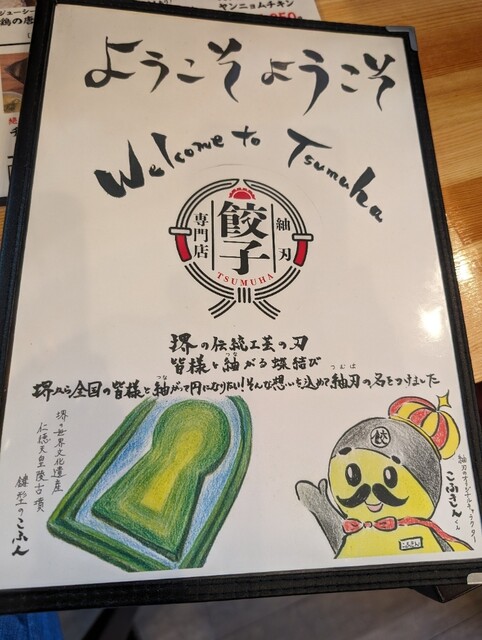 ヤンニョムチキン
ようこそようこそ
Welcome to Tsumuha
専門店
餃子
紬刃
TSUMUHA
堺の伝統工芸の刃
皆様と紬がる蝶結び
つな
堺から全国の皆様と紬がって円になりたい!そんな想いを込めて紬刃の名をつけました
つな
つむは
堺の世界文化遺産
仁徳天皇陵古墳
鍵型のこふん
餃
紬刃のオリジナルキャラクター
こふきんくん
こふきん